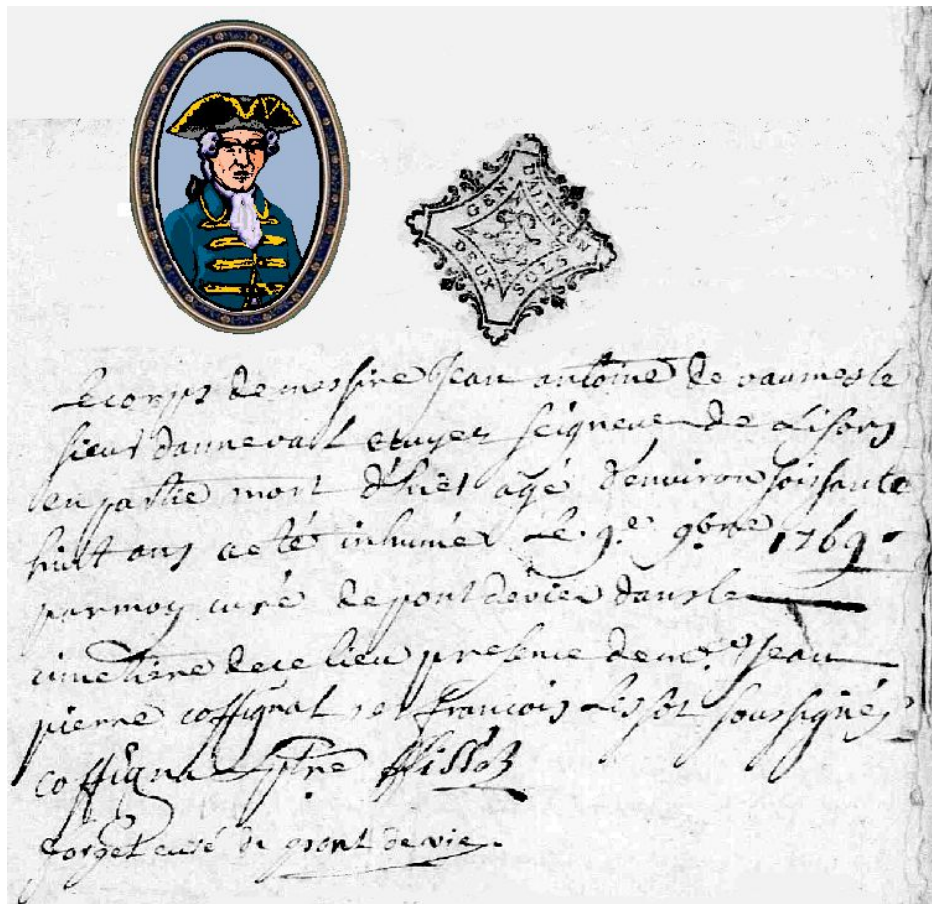 GEN. D'ALENÇON
DEUX SOLS
Le corps de messire Jean antoine de vaumesle
sieur dannevalt ecuyer seigneur de Lisors
en partie mort d'hier agé d'environ soissante
huit ans a eté inhumé Le 9.e 9bre 1769.
par moy curé de pont de vie dans le
cimetiere de ce lieu presence de me. Jean
pierre coffignal et francois Lissot soussignés
coffignal ptre ffissot
forget curé de pont de vie.